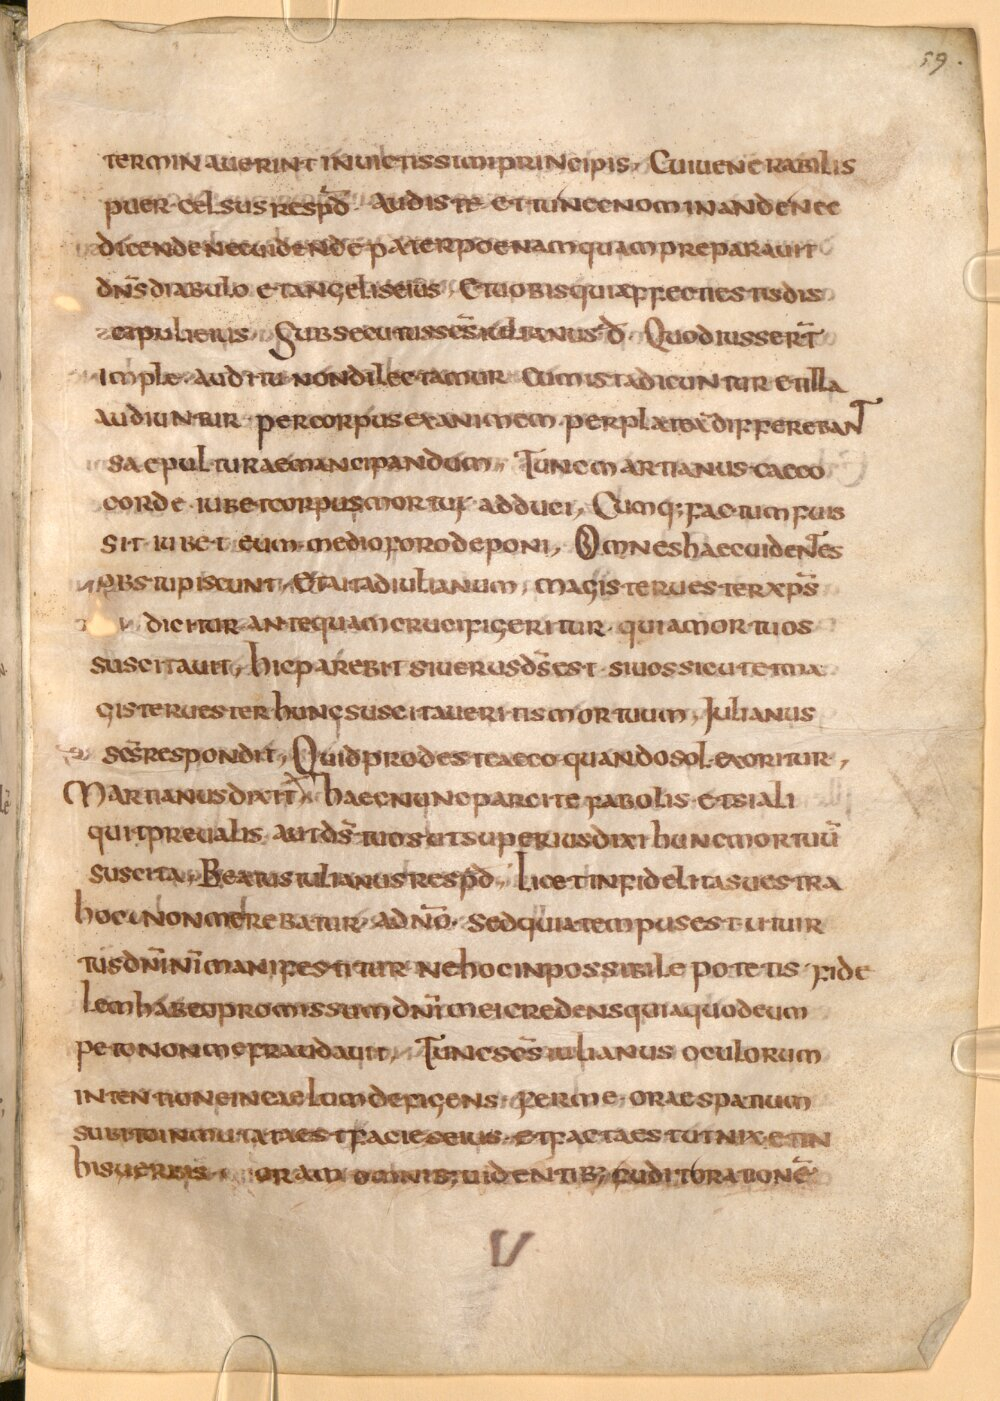 59.
terminauerint inuictissimi principis, Cui uenerabilis
puer celsus respd̄. Audiste et tunc nominande nec
dicende nec uidende pater poenam quam preparauit
dn̄s diabulo et angelis eius, Et uobis qui affecti estis dis
cipuli eius, Subsecutus scēs iulianus d̄. Quod iusserat̄
imple. auditu non dilectamur Cum ista dicuntur et illa
audiuntur per corpus exanimem per plateā differebant
saepulturae mancipandum, Tunc martianus caeco
corde iubet corpus mortui adduci, Cumq; factum fuis
sit iubet eum medio foro deponi, Omnes haec uidentes
obstupiscunt, Et ait ad iulianum, magister uester xp̄s
dicitur antequam crucifigeritur quia mortuos
suscitauit, hic parebit si uerus ds̄ est si uos sicut et ma
gister uester hunc suscitaueritis mortuum, Julianus
scs̄ respondit, Quid prodest caeco quando sol exoritur,
Martianus dixit, haec nunc parcite fabolis et si ali
quit preualis aut ds̄ tuos ut superius dixi hunc mortuū
suscita, Beatus iulianus respd̄, Licet infidelitas uestra
hoc non merebatur ad nō. sed quia tempus est ut uir
tus dn̄i nī manifestitur ne hoc inpossibile potetis fide
lem habeo promissum dn̄i mei credens quia quod eum
peto non me fraudauit, Tunc scs̄ iulianus oculorum
intentione in caelum defigens ferme orae spatium
subito inmutata est facies eius et facta est ut nix et in
his uerbis orauit omnib; uidentib; fudit orationē
V